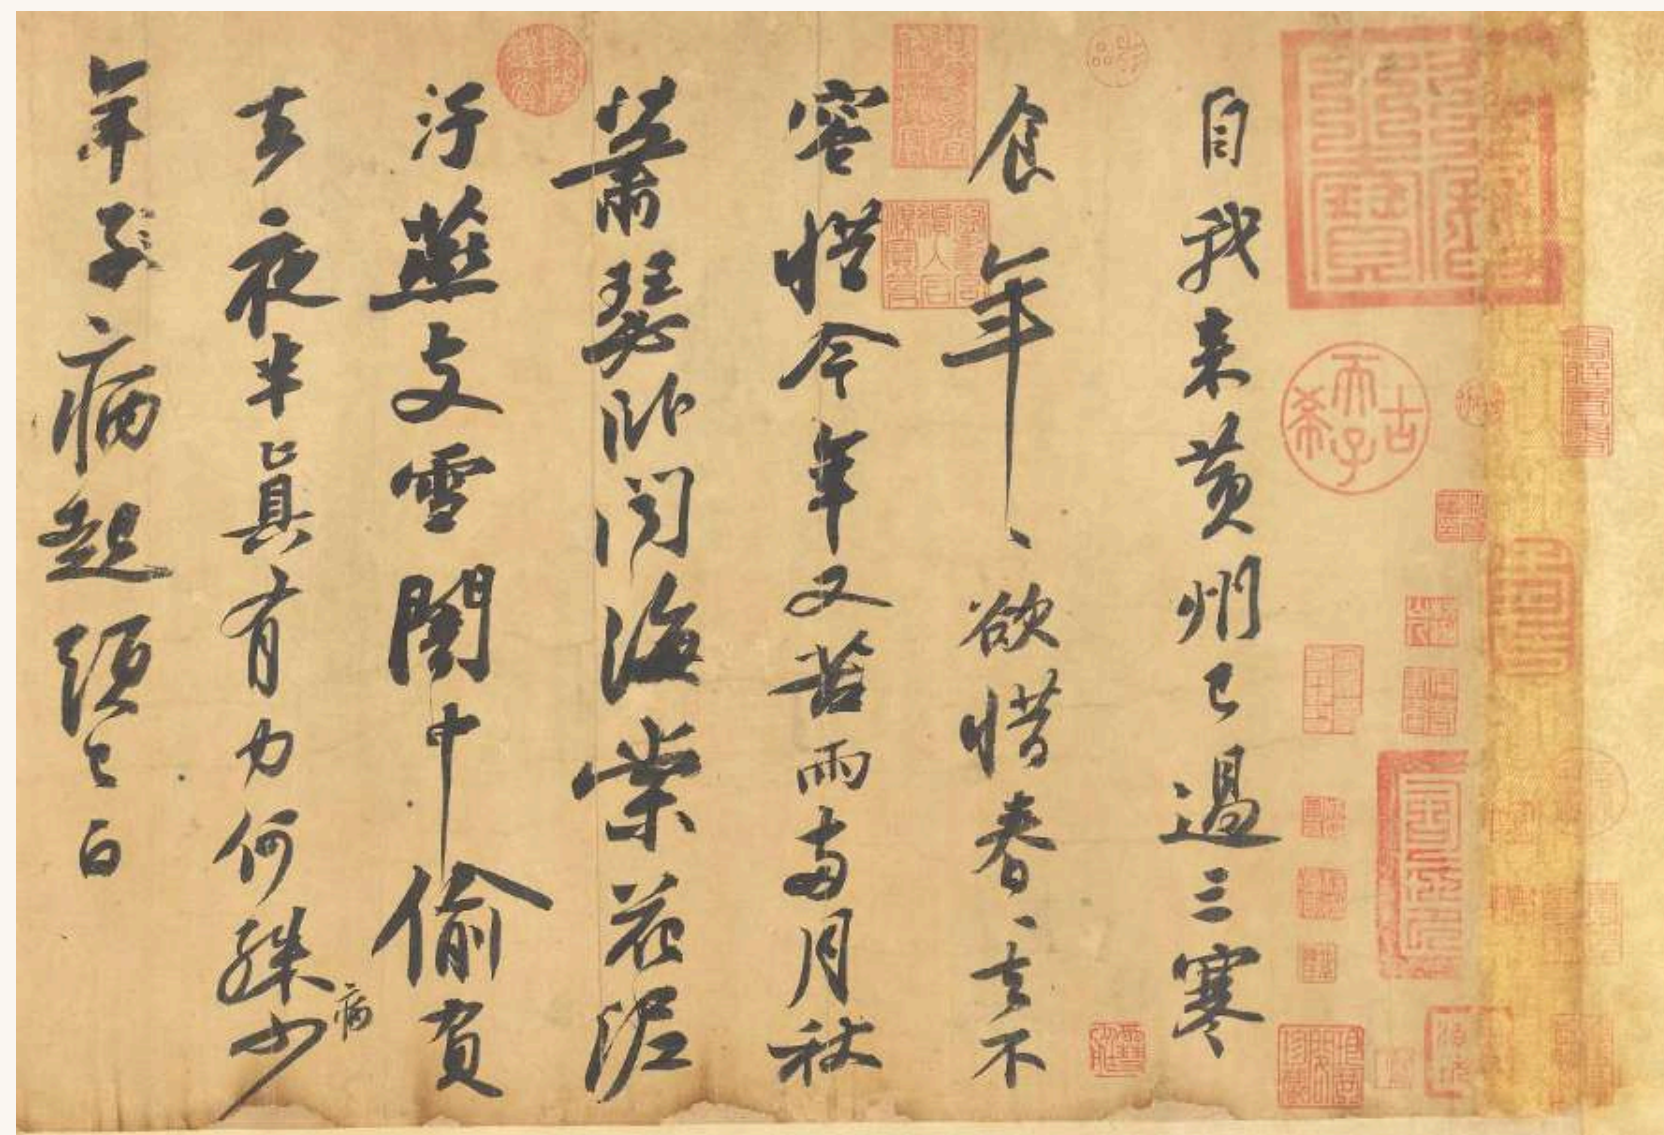 自我来黄州已過三寒
食年、欲惜春、去不
容惜今年又苦雨兩月秋
蕭瑟卧聞海棠花泥
汙燕支雪闇中偷負
去夜半眞有力何殊少
病
年子病起頭已白
古希天子